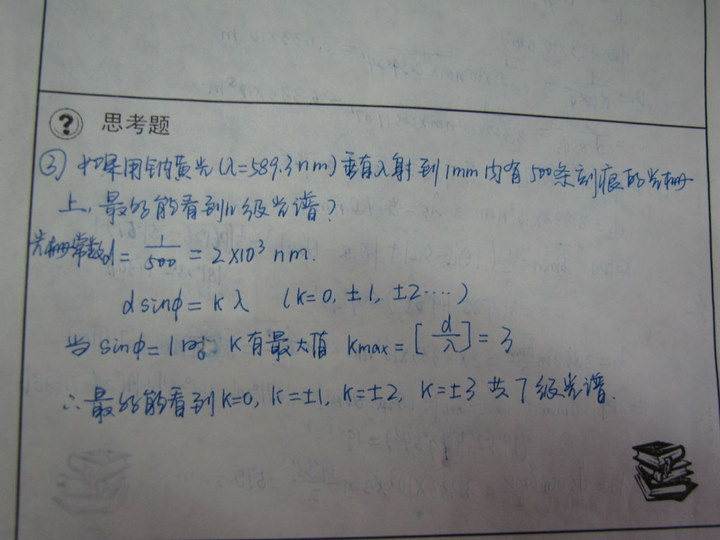 ? 思考题
③ 如果用钠黄光(λ=589.3nm)垂直入射到1mm内有500条刻痕的光栅
上,最多能看到几级光谱?
光栅常数d = 1/500 = 2×10³ nm.
dsinφ = Kλ (K=0, ±1, ±2····)
当 sinφ=1时, K有最大值 Kmax=[d/λ]=3
∴最多能看到K=0, K=±1, K=±2, K=±3 共7级光谱.